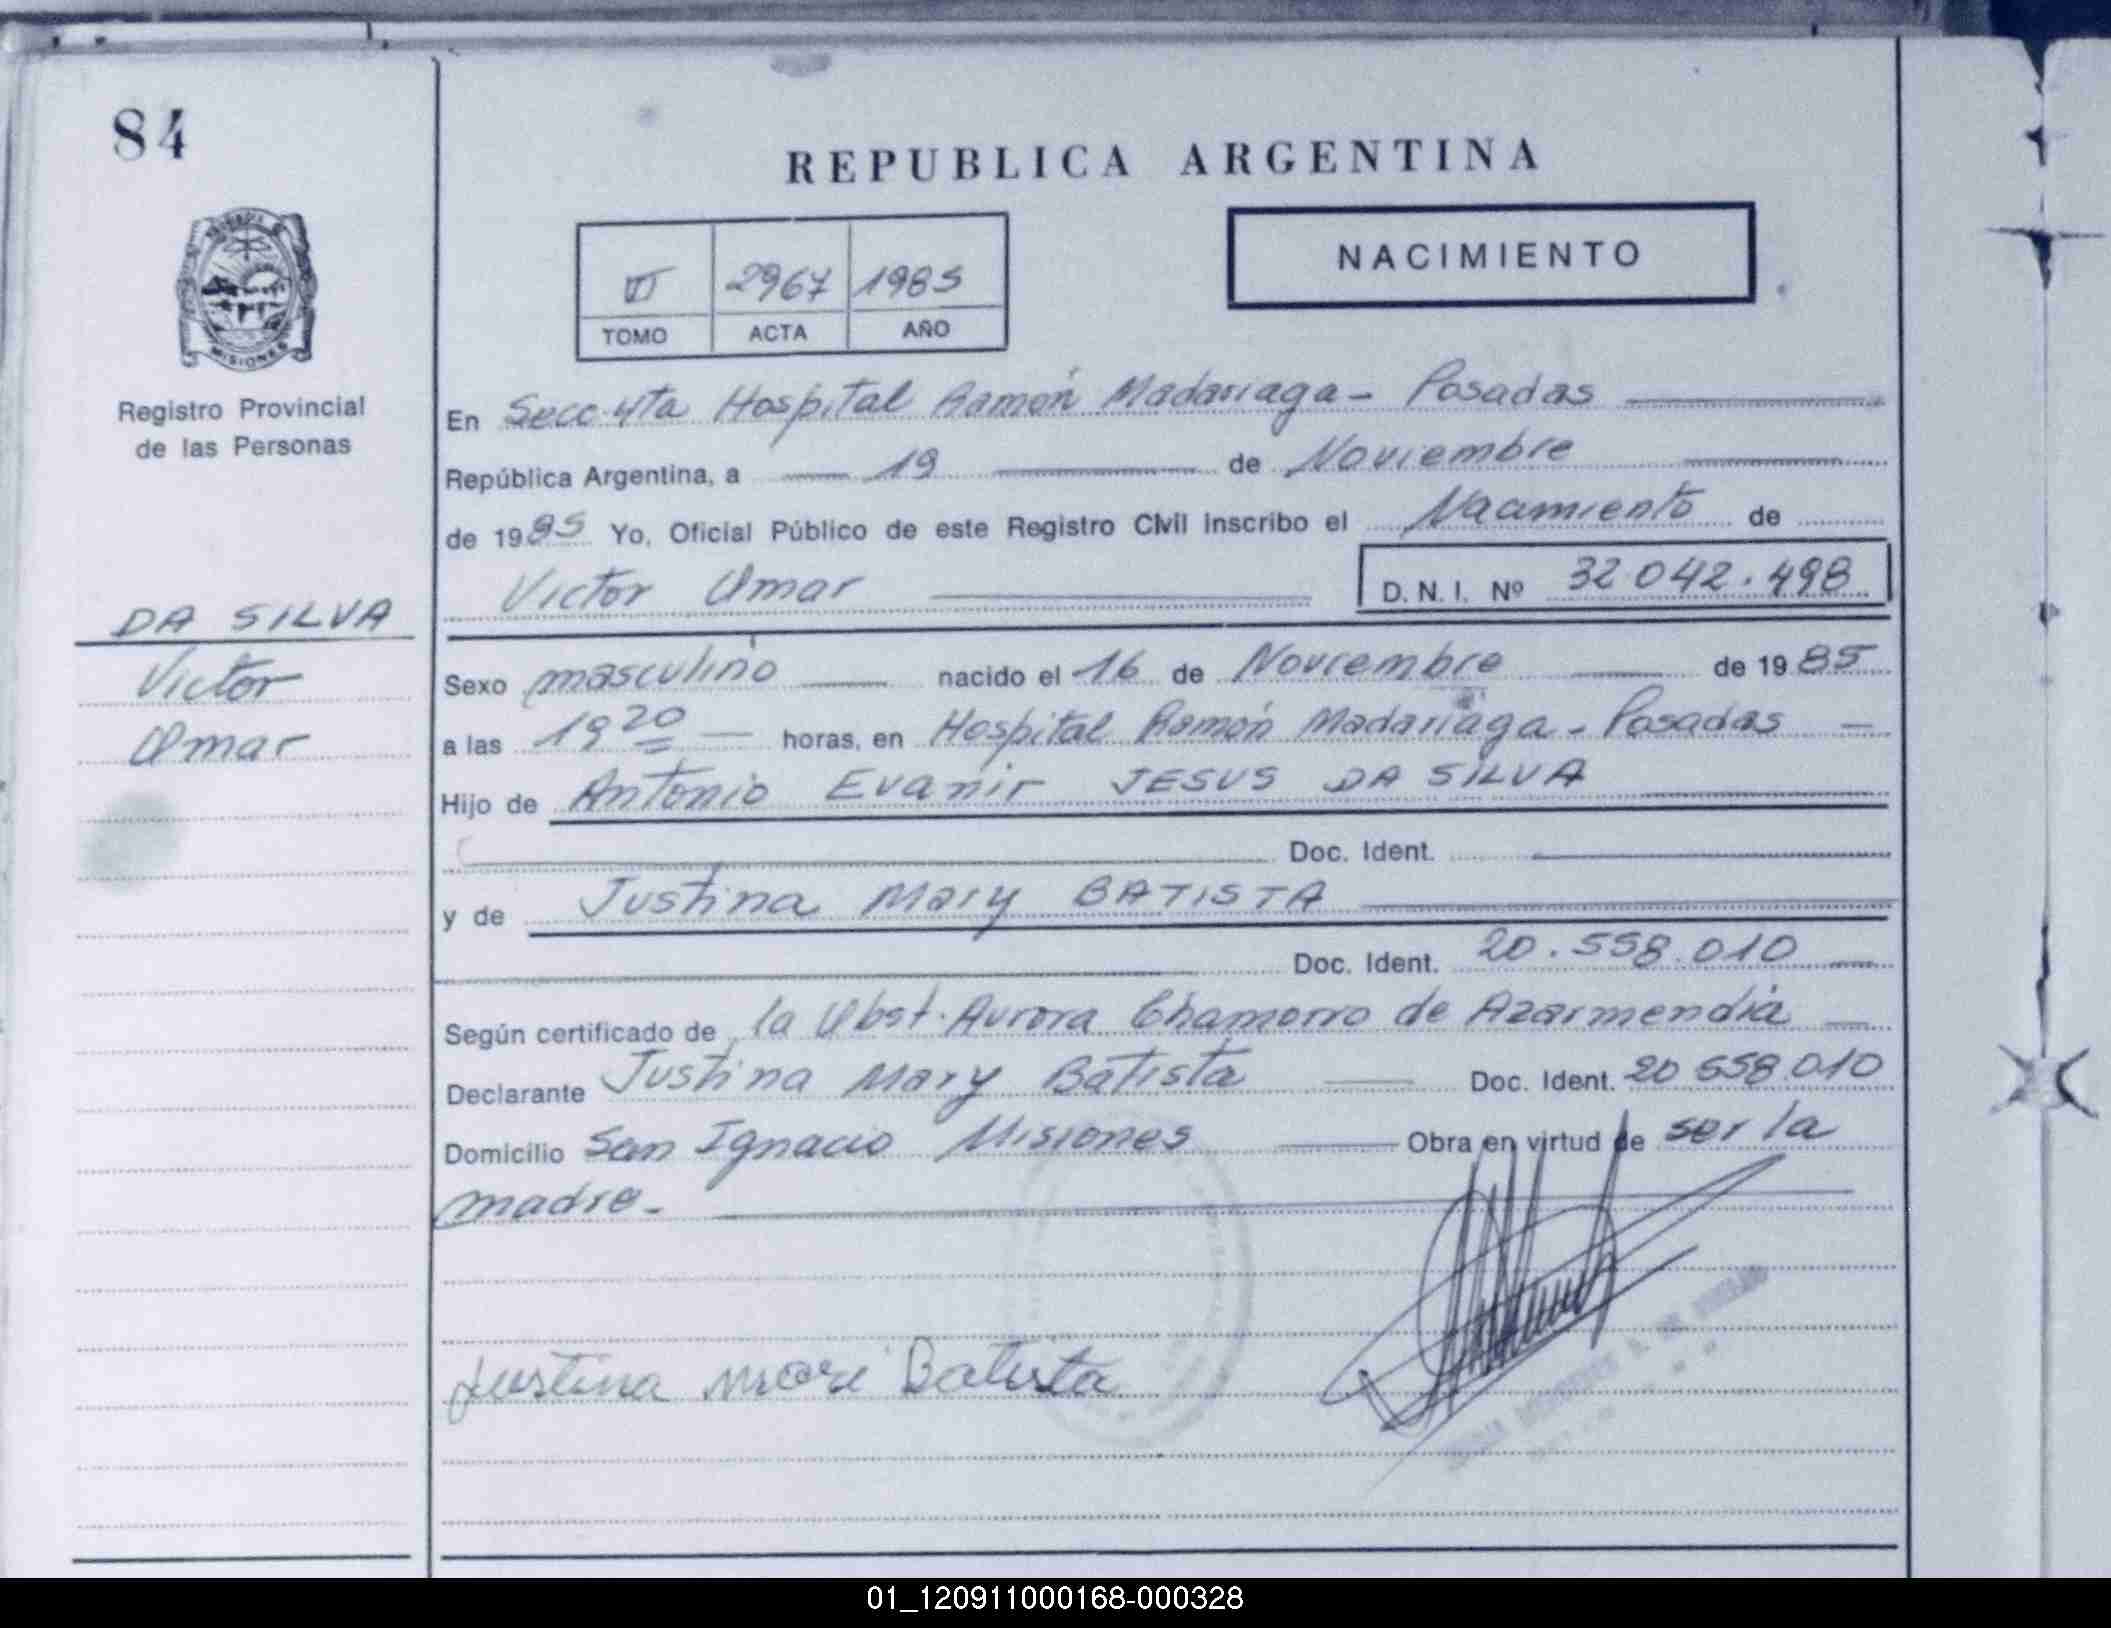 84
REPUBLICA ARGENTINA
NACIMIENTO
VI 2967 1985
TOMO ACTA AÑO
MISIONES
Registro Provincial
de las Personas
En Secc 4ta Hospital Ramón Madariaga - Posadas
República Argentina, a 19 de Noviembre
de 1985 Yo, Oficial Público de este Registro Civil inscribo el Nacimiento de
Victor Omar D.N.I. Nº 32.042.498
DA SILVA
Victor
Omar
Sexo masculino nacido el 16 de Noviembre de 1985
a las 19 20 horas, en Hospital Ramón Madariaga - Posadas
Hijo de Antonio Evanir JESUS DA SILVA
Doc. Ident.
y de Justina Mary BATISTA
Doc. Ident. 20.558.010
Según certificado de la Obst. Aurora Chamorro de Azarmendia
Declarante Justina Mary Batista Doc. Ident. 20 558.010
Domicilio San Ignacio Misiones Obra en virtud de ser la
madre.
Justina Mari Batista
01_120911000168-000328